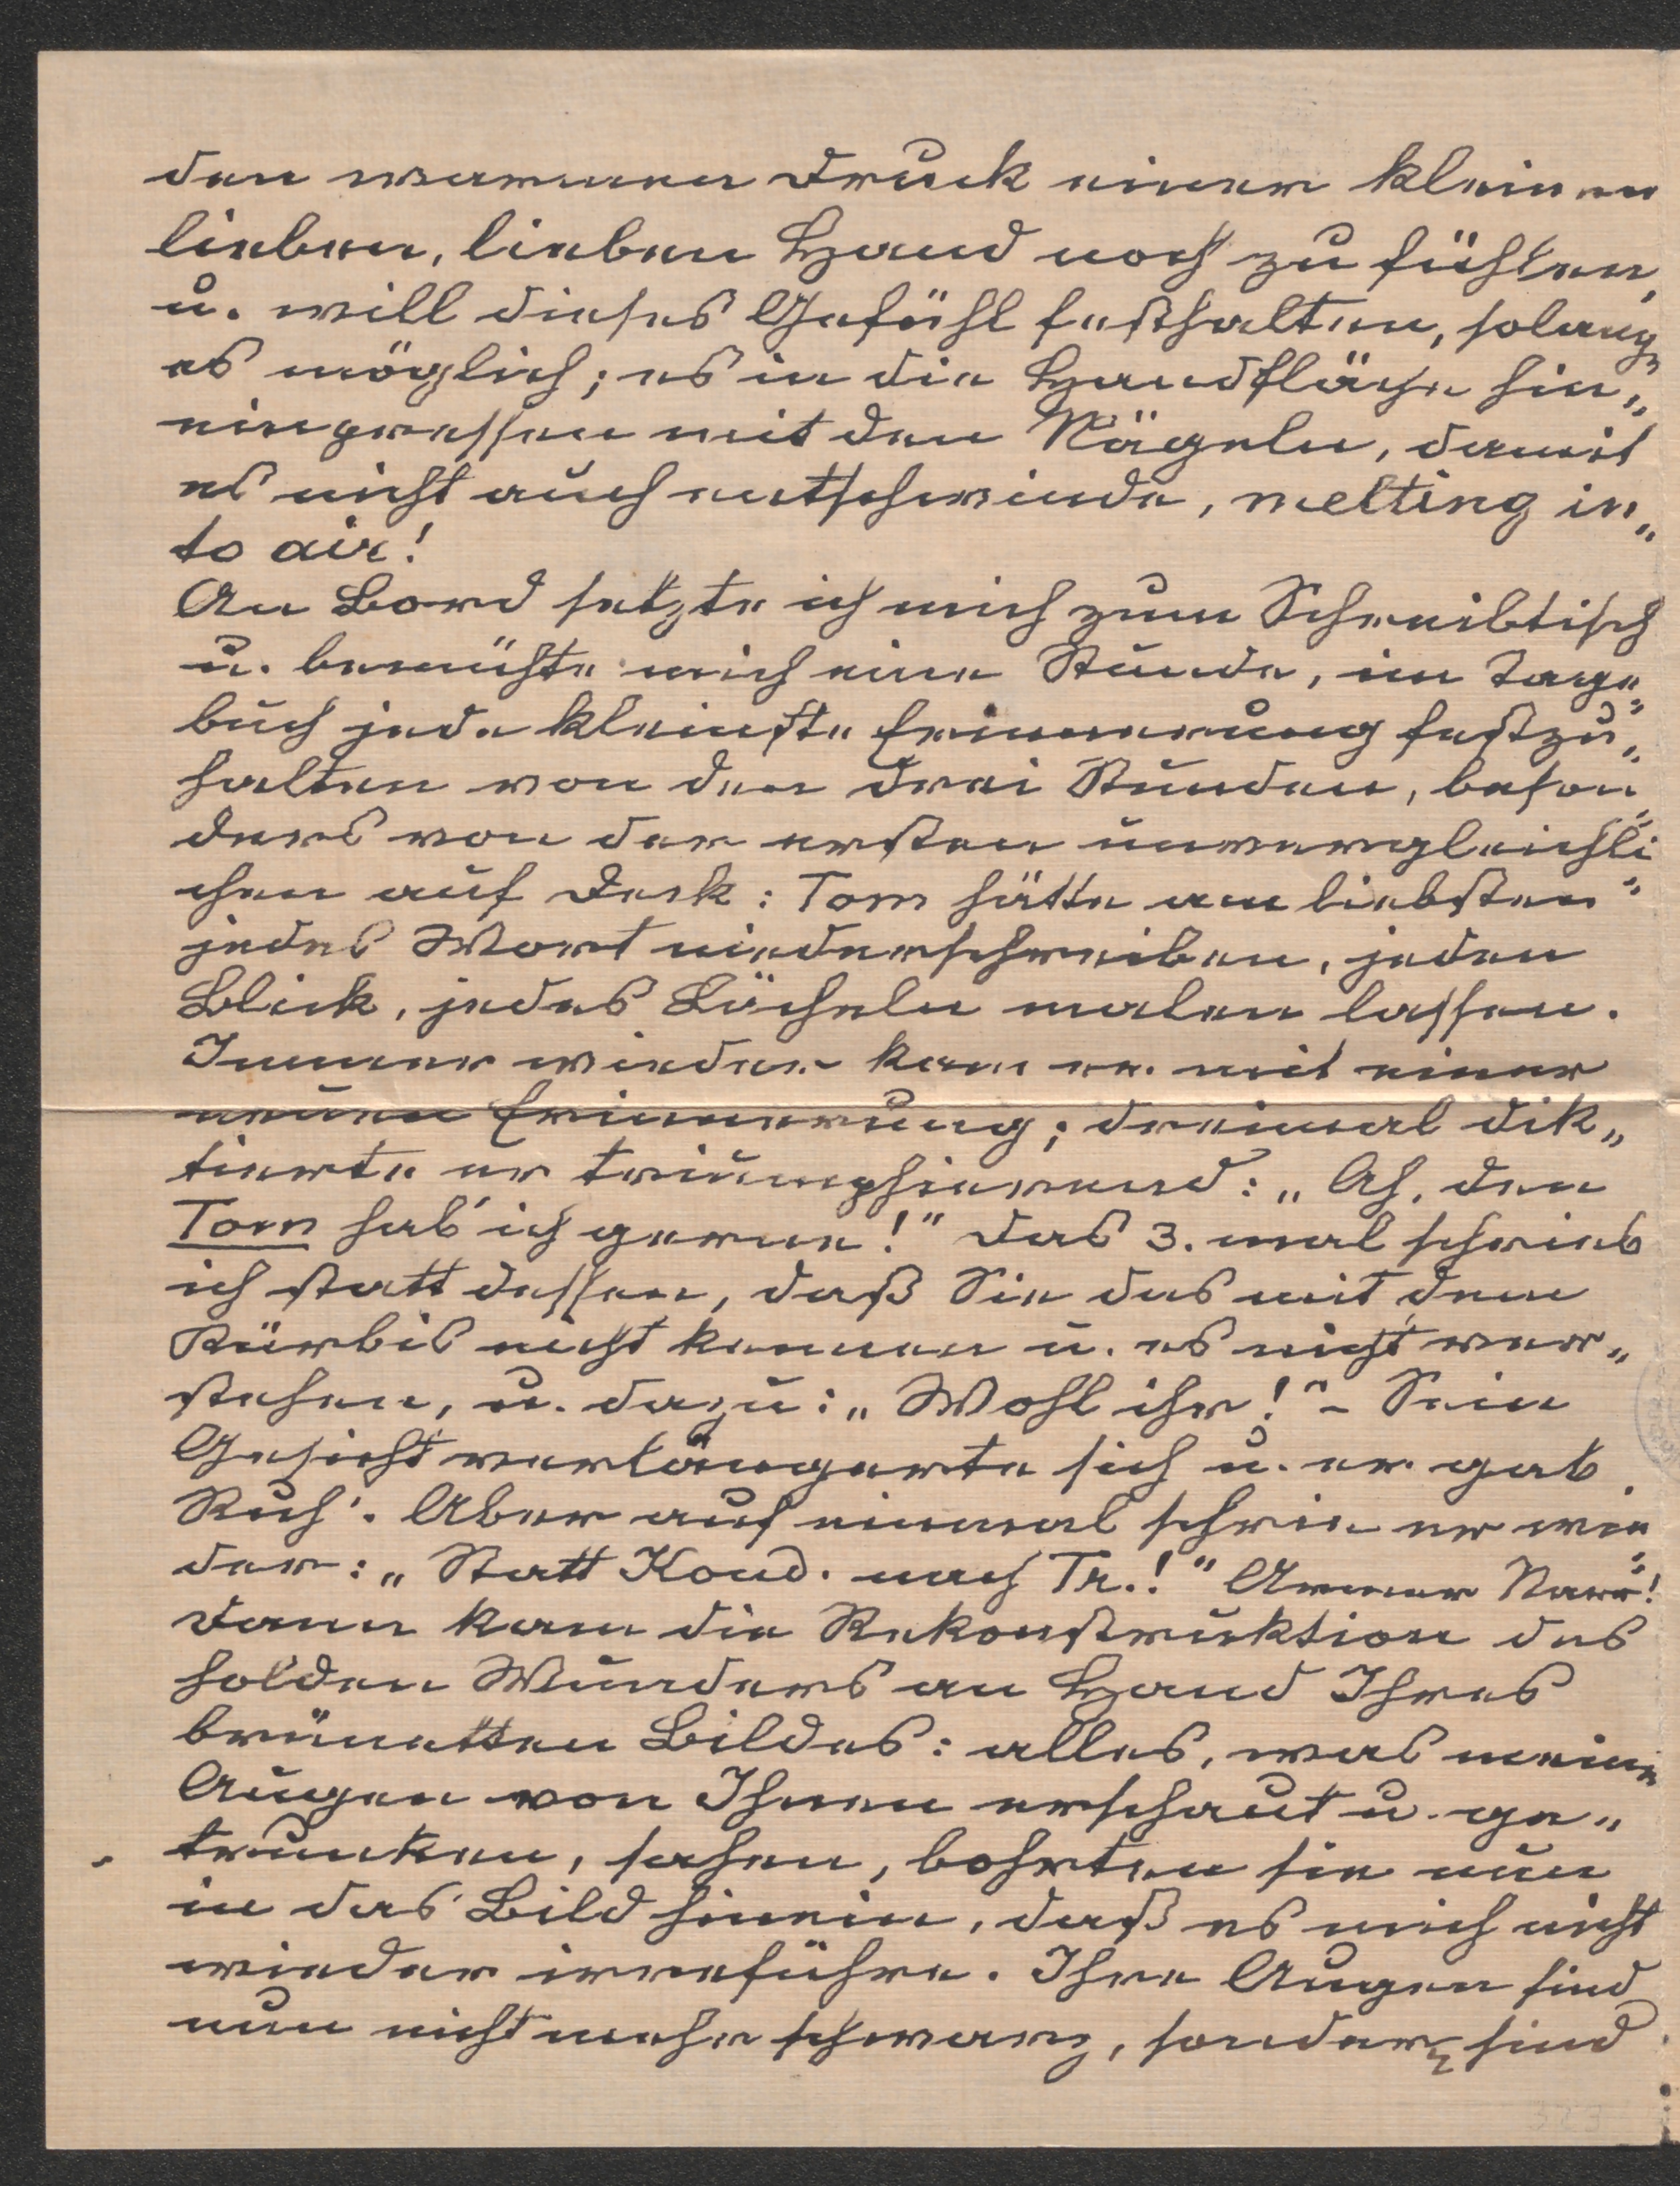 den warmen Druck einer kleinen
lieben, lieben Hand noch zu fühlen,
u. will dieses Gefühl festhalten, solang
es möglich; es in die Handfläche hin„
einpressen mit den Nägeln, damit
es nicht auch entschwinde, melting in„
to air!
An Bord setzte ich mich zum Schreibtisch
u. bemühte mich eine Stunde, im Tage„
buch jede kleinste Erinnerung festzu„
halten von den drei Stunden, beson„
ders von der ersten unvergleichli„
chen auf Deck: Tom hätte am liebsten
jedes Wort niederschreiben, jeden
Blick, jedes Lächeln malen lassen.
Immer wieder kam er mit einer
neuen Erinnerung; dreimal dik„
tierte er triumphierend: „Ah, den
Tom hab' ich gerne!" Das 3. mal schrieb
ich statt dessen, daß Sie das mit dem
Kürbis nicht kennen u. es nicht ver„
stehen, u. dazu: „Wohl ihr!" – Sein
Gesicht verlängerte sich u. er gab
Ruh'. Aber auf einmal schrie er wie„
der: „Statt Kond. nach Tr.!" Armer Narr!
Dann kam die Rekonstruktion des
holden Wunders an Hand Ihres
brünetten Bildes: alles, was meine
Augen von Ihnen erschaut u. ge„
trunken, sahen, bohrten sie nun
in das Bild hinein, daß es mich nicht
wieder irreführe. Ihre Augen sind
nun nicht mehr schwarz, sondern sind